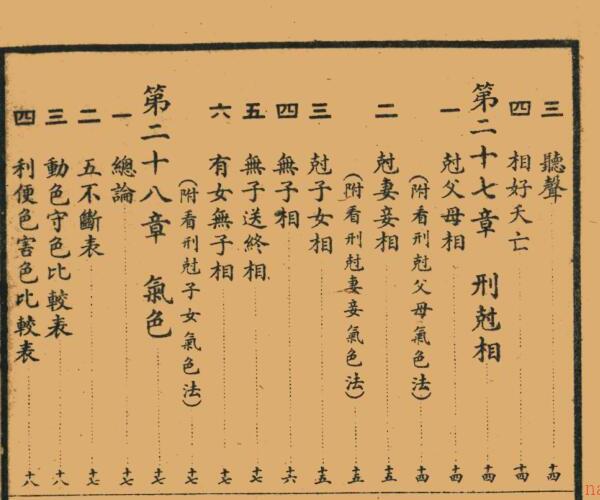 三 聽聲 十四
四 相好夭亡 十四
第二十七章 刑尅相 十四
一 尅父母相 十四
(附看刑尅父母氣色法) 十四
二 尅妻妾相 十五
(附看刑尅妻妾氣色法) 十五
三 尅子女相 十五
四 無子相 十六
五 無子送終相 十七
六 有女無子相 十七
(附看刑尅子女氣色法) 十七
第二十八章 氣色 十七
一 總論 十七
二 五不斷表 十七
三 動色守色比較表 十八
四 利便色害色比較表 十八
na